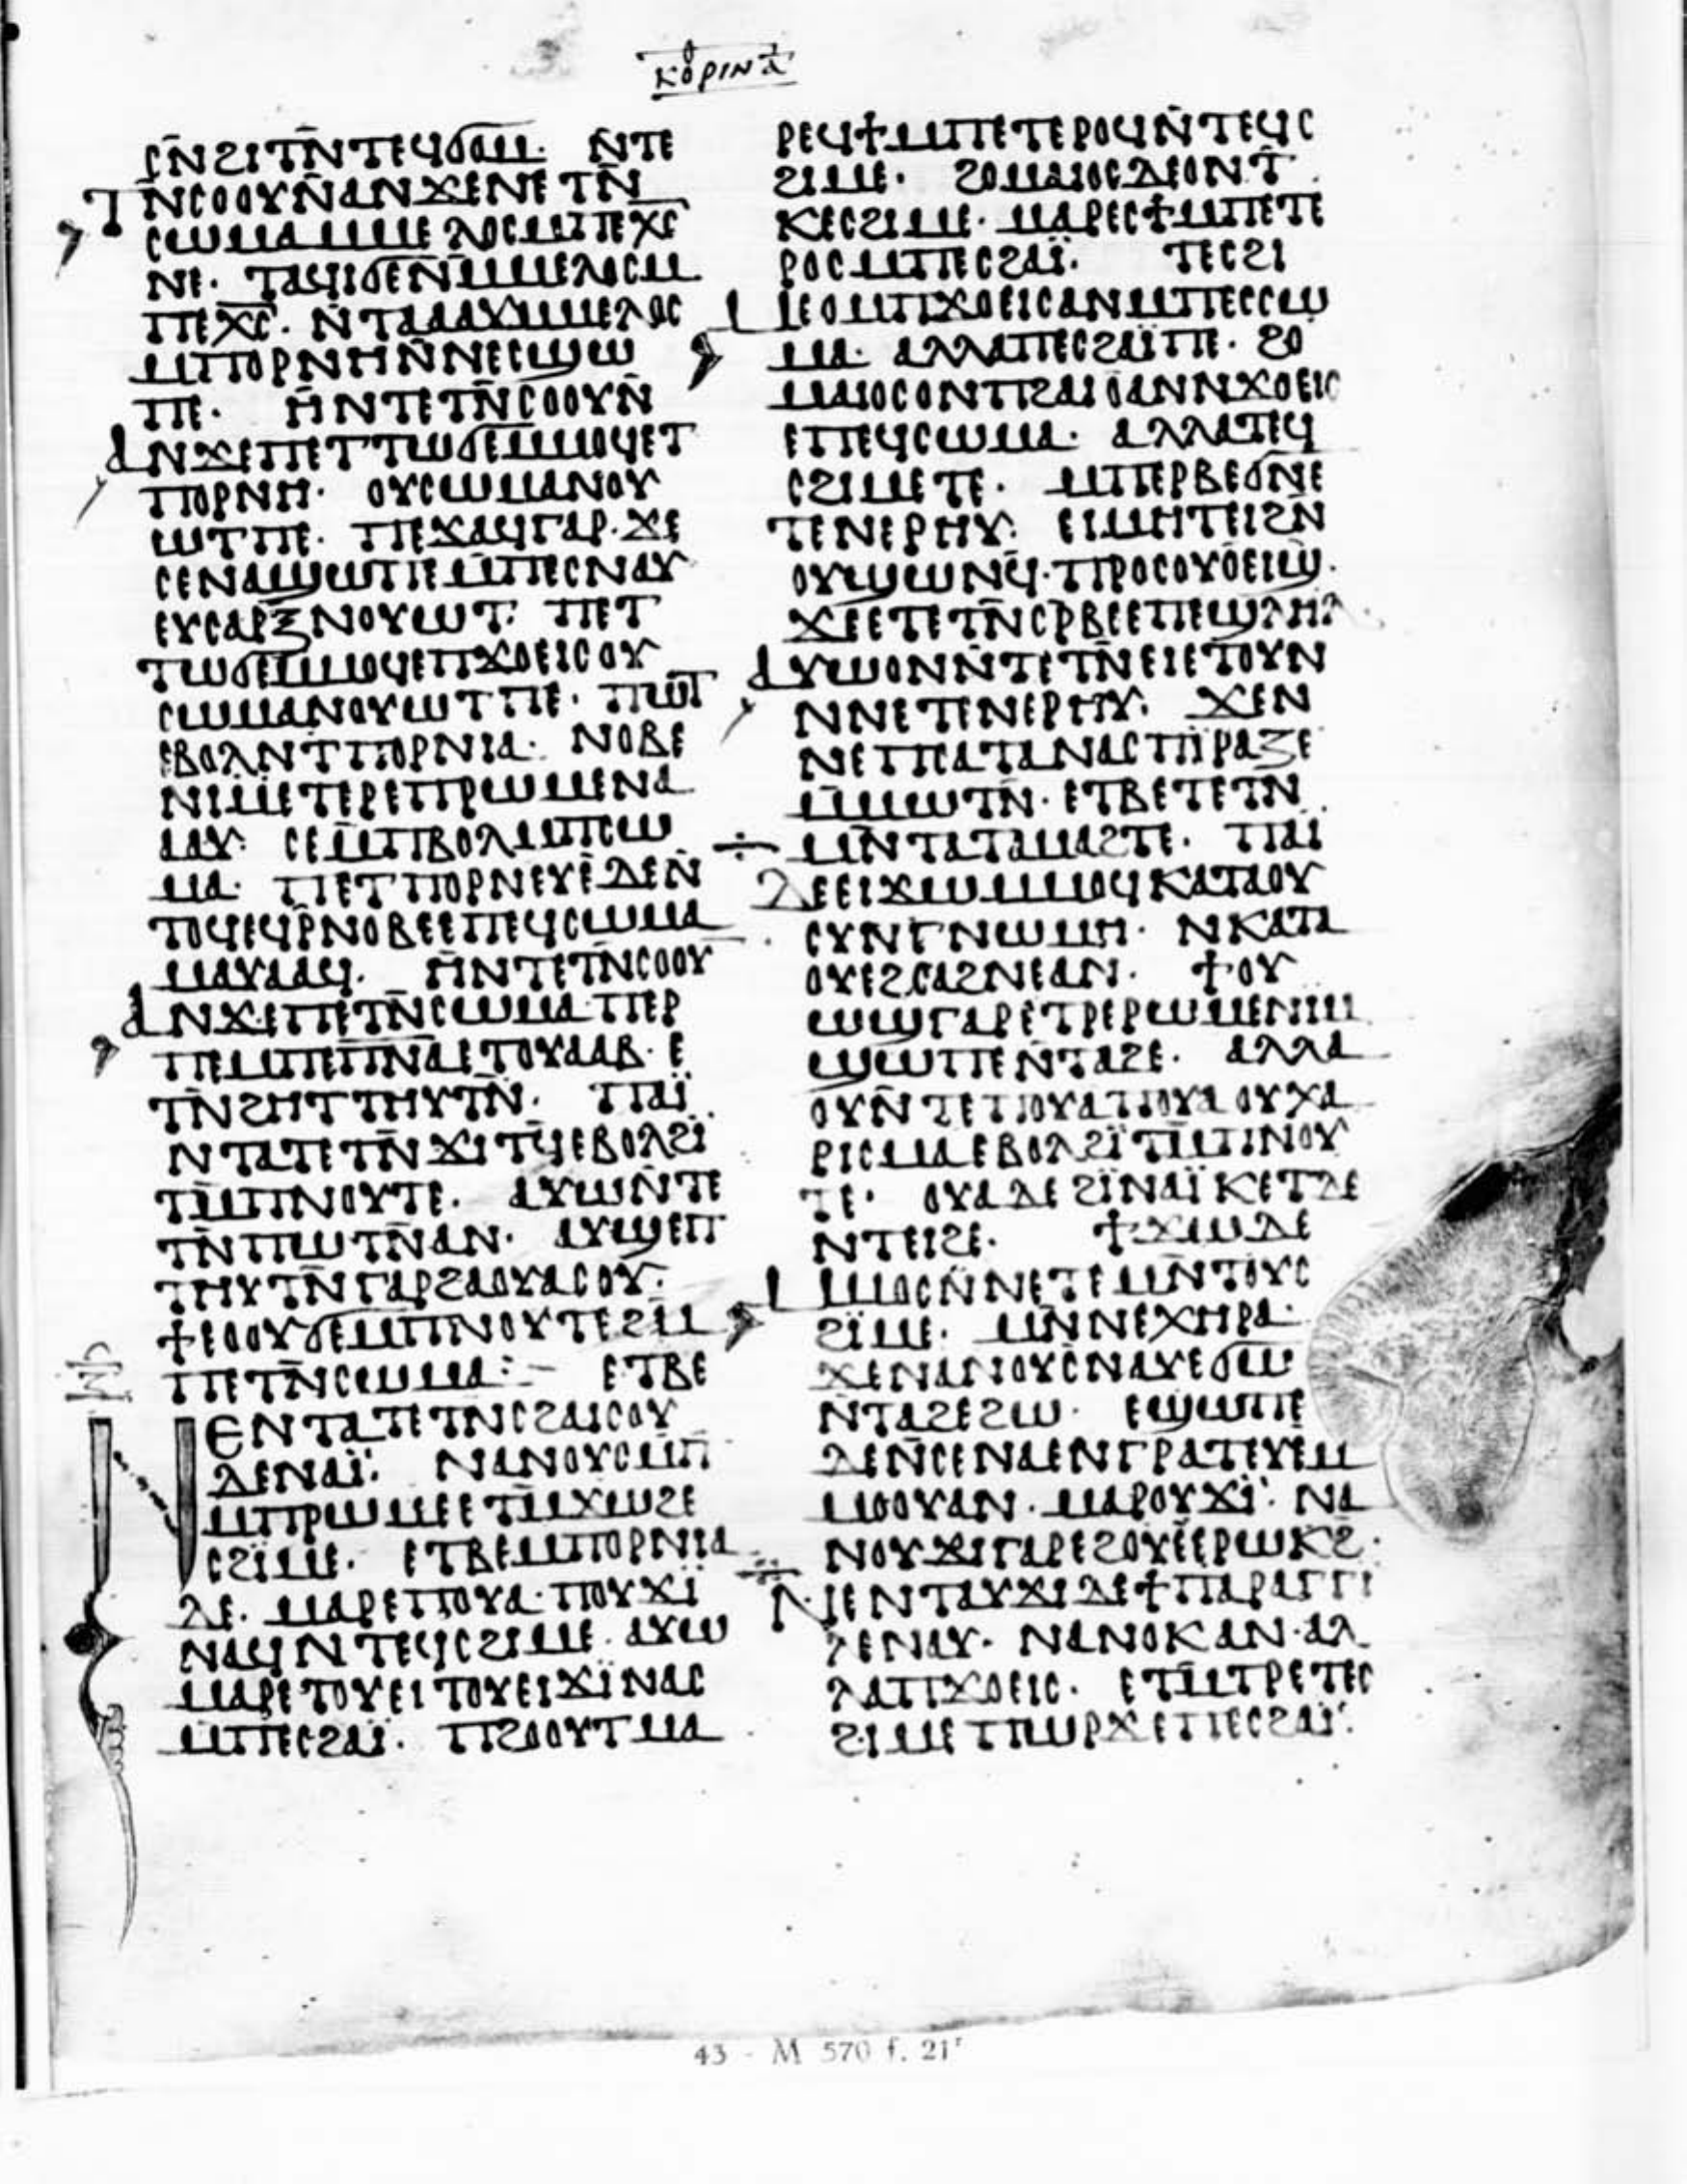 ⲕⲟⲣⲓⲛ ⲁ̄
ⲥⲛ̄ϩⲓⲧⲛ̄ⲧⲉϥϭⲟⲙ· ⲛ̄ⲧⲉ
ⲧⲛⲥⲟⲟⲩⲛ̄ⲁⲛϫⲉⲛⲉⲧⲛ̄
ⲥⲱⲙⲁⲙⲙⲉⲗⲟⲥⲙ̄ⲡⲉⲭ̄ⲥ̄
ⲛⲉ· ⲧⲁϥⲓϭⲉⲛ̄ⲙⲙⲉⲗⲟⲥⲙ
ⲡⲉⲭ̄ⲥ̄· ⲛ̄ⲧⲁⲁⲁⲩⲙⲙⲉⲗⲟⲥ
ⲙⲡⲟⲣⲛⲏⲛ̄ⲛⲉⲥϣⲱ
ⲡⲉ· ⲏ̄ⲛⲧⲉⲧⲛ̄ⲥⲟⲟⲩⲛ̄
ⲁⲛϫⲉⲡⲉⲧⲧⲱϭⲉⲙ̄ⲙⲟϥⲉⲧ
ⲡⲟⲣⲛⲏ· ⲟⲩⲥⲱⲙⲁⲛⲟⲩ
ⲱⲧⲡⲉ· ⲡⲉϫⲁϥⲅⲁⲣ·ϫⲉ
ⲥⲉⲛⲁϣⲱⲡⲉⲙ̄ⲡⲉⲥⲛⲁⲩ
ⲉⲩⲥⲁⲣⲝⲛⲟⲩⲱⲧ· ⲡⲉⲧ
ⲧⲱϭⲉⲙ̄ⲙⲟϥⲉⲡϫⲟⲉⲓⲥⲟⲩ
ⲥⲱⲙⲁⲛⲟⲩⲱⲧⲡⲉ· ⲡⲱⲧ
ⲉⲃⲟⲗⲛⲧⲡⲟⲣⲛⲓⲁ· ⲛⲟⲃⲉ
ⲛⲓⲙⲉⲧⲉⲣⲉⲡⲣⲱⲙⲉⲛⲁ
ⲁⲁⲩ· ⲥⲉⲙ̄ⲡⲃⲟⲗⲙ̄ⲡⲥⲱ
ⲙⲁ· ⲡⲉⲧⲡⲟⲣⲛⲉⲩⲉⲇⲉⲛ̄
ⲧⲟϥⲉϥⲣ̄ⲛⲟⲃⲉⲉⲡⲉϥⲥⲱⲙⲁ
ⲙⲁⲩⲁⲁϥ· ⲏ̄ⲛⲧⲉⲧⲛ̄ⲥⲟⲟⲩ
ⲁⲛϫⲉⲡⲉⲧⲛ̄ⲥⲱⲙⲁ·ⲡⲉⲣ
ⲡⲉⲙⲡⲉⲡ̄ⲛ̄ⲁⲉⲧⲟⲩⲁⲁⲃ·ⲉ
ⲧⲛ̄ϩⲏⲧⲧⲏⲩⲧⲛ̄· ⲡⲁⲓ̈
ⲛⲧⲁⲧⲉⲧⲛϫⲓⲧϥⲉⲃⲟⲗϩⲓ
ⲧⲙ̄ⲡⲛⲟⲩⲧⲉ· ⲁⲩⲱⲛ̄ⲧⲉ
ⲧⲛ̄ⲡⲱⲧⲛ̄ⲁⲛ· ⲁⲩϣⲉⲡ
ⲧⲏⲩⲧⲛ̄ⲅⲁⲣϩⲁⲟⲩⲁⲥⲟⲩ·
ϯⲉⲟⲟⲩϭⲉⲙⲡⲛⲟⲩⲧⲉϩⲙ
ⲡⲉⲧⲛ̄ⲥⲱⲙⲁ:– ⲉⲧⲃⲉ
ⲛⲉⲛⲧⲁⲧⲉⲧⲛⲥϩⲁⲓⲥⲟⲩ
ⲇⲉⲛⲁⲓ̈· ⲛⲁⲛⲟⲩⲥⲙ̄ⲡ̄
ⲙⲡⲣⲱⲙⲉⲉⲧⲙ̄ϫⲱϩⲉ
ⲥϩⲓ̈ⲙⲉ· ⲉⲧⲃⲉⲙⲡⲟⲣⲛⲓⲁ
ⲇⲉ· ⲙⲁⲣⲉⲡⲟⲩⲁ·ⲡⲟⲩϫⲓ̈
ⲛⲁϥⲛⲧⲉϥⲥϩⲓⲙⲉ·ⲁⲩⲱ
ⲙⲁⲣⲉⲧⲟⲩⲉⲓⲧⲟⲩⲉⲓϫⲓ̈ⲛⲁⲥ
ⲙⲡⲉⲥϩⲁⲓ̈· ⲡϩⲟⲟⲩⲧⲙⲁ
ⲣⲉϥϯⲙⲡⲉⲧⲉⲣⲟϥⲛ̄ⲧⲉϥⲥ
ϩⲓⲙⲉ· ϩⲟⲙⲁⲓⲟⲥⲇⲉⲟⲛ·ⲧ̄
ⲕⲉⲥϩⲓⲙⲉ·ⲙⲁⲣⲉⲥϯⲙⲡⲉⲧⲉ
ⲣⲟⲥⲙⲡⲉⲥϩⲁⲓ̈· ⲧⲉⲥϩⲓ
ⲙⲉⲟⲙⲡϫⲟⲉⲓⲥⲁⲛⲙⲡⲉⲥⲥⲱ
ⲙⲁ· ⲁⲗⲗⲁⲡⲉⲥϩⲁⲓ̈ⲡⲉ· ϩⲟ
ⲙⲁⲓⲟⲥⲟⲛⲡϩⲁⲓⲟⲁⲛⲛϫⲟⲉⲓⲥ
ⲉⲡⲉϥⲥⲱⲙⲁ· ⲁⲗⲗⲁⲧⲉϥ
ⲥϩⲓⲙⲉⲧⲉ· ⲙⲡⲉⲣⲃⲉϭⲛⲉ
ⲧⲉⲛⲉⲣⲏⲩ· ⲉⲓⲙⲏⲧⲉⲓϩⲛ̄
ⲟⲩϣⲱⲛϥ·ⲡⲣⲟⲥⲟⲩⲟⲉⲓϣ·
ϫⲉⲉⲧⲉⲧⲛ̄ⲥⲣⲃⲉⲉⲡⲉϣⲗⲏⲗ
ⲁⲩⲱⲟⲛⲛ̄ⲧⲉⲧⲛ̄ⲉⲓⲉⲧⲟⲩⲛ
ⲛⲛⲉⲧⲉⲛⲉⲣⲏⲩ· ϫⲉⲛ
ⲛⲉⲡⲥⲁⲧⲁⲛⲁⲥⲡⲓ̈ⲣⲁⲍⲉ
ⲙ̄ⲙⲱⲧⲛ·ⲉⲧⲃⲉⲧⲉⲧⲛ
ⲙⲛ̄ⲧⲁⲧⲁⲙⲁϩⲧⲉ· ⲡⲁⲓ̈
ⲇⲉⲉⲓϫⲱⲙⲙⲟϥⲕⲁⲧⲁⲟⲩ
ⲥⲩⲛⲅⲛⲱⲙⲏ· ⲛⲕⲁⲧⲁ
ⲟⲩⲉϩⲥⲁϩⲛⲉⲁⲛ· ϯⲟⲩ
ⲱϣⲅⲁⲣⲉⲧⲣⲉⲣⲱⲙⲉⲛⲓⲙ
ϣⲱⲡⲉⲛⲧⲁϩⲉ· ⲁⲗⲗⲁ
ⲟⲩⲛ̄ⲧⲉⲡⲟⲩⲁⲡⲟⲩⲁⲟⲩⲭⲁ
ⲣⲓⲥⲙⲁⲉⲃⲟⲗϩⲓ̈ⲧⲙ̄ⲡⲛⲟⲩ
ⲧⲉ· ⲟⲩⲁⲇⲉϩⲓ̈ⲛⲁⲓ̈ⲕⲉⲧⲇⲉ
ⲛⲧⲉⲓϩⲉ· ϯϫⲱⲇⲉ
ⲙⲙⲟⲥⲛ̄ⲛⲉⲧⲉⲙⲛ̄ⲧⲟⲩⲥ
ϩⲓ̈ⲙⲉ· ⲙⲛ̄ⲛⲉⲭⲏⲣⲁ·
ϫⲉⲛⲁⲛⲟⲩⲥⲛⲁⲩⲉϭⲱ
ⲛⲧⲁϩⲉϩⲱ· ⲉϣⲱⲡⲉ
ⲇⲉⲛ̄ⲥⲉⲛⲁⲉⲛⲅⲣⲁⲧⲉⲩⲉⲙ
ⲙⲟⲟⲩⲁⲛ·ⲙⲁⲣⲟⲩϫⲓ̈· ⲛⲁ
ⲛⲟⲩϫⲓⲅⲁⲣⲉϩⲟⲩⲉⲉⲣⲱⲕϩ·
ⲛⲉⲛⲧⲁⲩϫⲓⲇⲉϯⲡⲁⲣⲁⲅⲅⲓ
ⲗⲉⲛⲁⲩ· ⲛⲁⲛⲟⲕⲁⲛ·ⲁⲗ
ⲗⲁⲡϫⲟⲉⲓⲥ· ⲉⲧⲙ̄ⲧⲣⲉⲧⲉⲥ
ϩⲓⲙⲉⲡⲱⲣϫⲉⲡⲉⲥϩⲁⲓ̈·
43 - M 570 f. 21ʳ